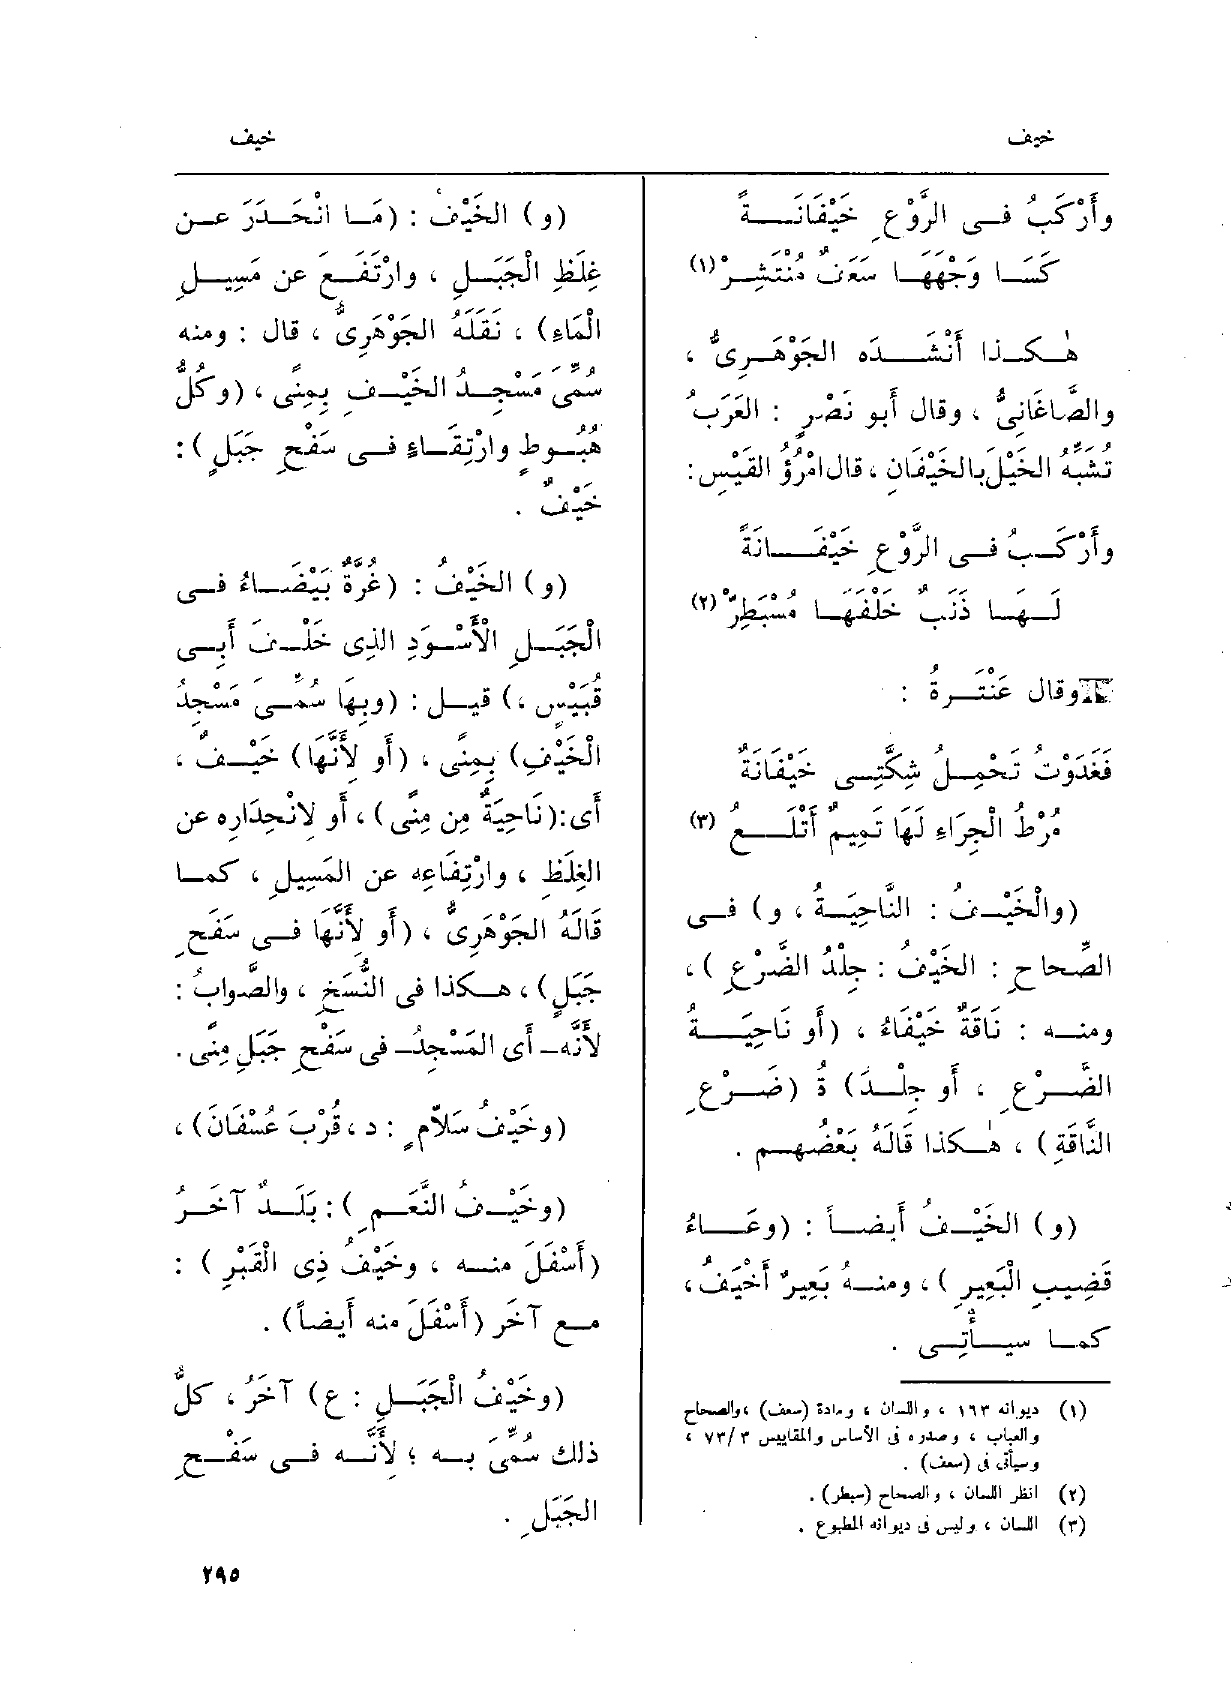 خيف
خيف
وأَرْكَبُ فى الرَّوْعِ خَيْفَانَةً
كَسَا وَجْهَهَا سَعَفٌ مُنْتَشِرْ (١)
هٰكذا أَنْشَدَه الجَوْهَرِىُّ ،
والصَّاغَانِىُّ ، وقال أَبو نَصْرٍ : العَرَبُ
تُشَبِّهُ الخَيْلَ بالخَيْفَانِ ، قال امْرُؤُ القَيْسِ :
وأَرْكَبُ فى الرَّوْعِ خَيْفَانَةً
لَهَا ذَنَبٌ خَلْفَهَا مُسْبَطِرّْ (٢)
وقال عَنْتَرةُ :
فَغَدَوْتُ تَحْمِلُ شِكَّتِى خَيْفَانَةٌ
مُرْطُ الْجِرَاءِ لَهَا تَمِيمٌ أَتْلَعُ (٣)
(والْخَيْفُ : النَّاحِيَةُ ، و) فى
الصِّحاحِ : الخَيْفُ : جِلْدُ الضَّرْعِ ) ،
ومنه : نَاقَةٌ خَيْفَاءُ ، (أَو نَاحِيَةُ
الضَّرْعِ ، أَو جِلْدَ) ةُ (ضَرْعِ
النَّاقَةِ) ، هٰكذا قَالَهُ بَعْضُهم .
(و) الخَيْفُ أَيضاً : (وعَاءُ
قَضِيبِ الْبَعِيرِ) ، ومنهُ بَعِيرٌ أَخْيَفُ ،
كما سيأْتِى .
(١) ديوانه ١٦٣ ، واللسان ، ومادة (سعف) ، والصحاح
والعباب ، وصدره فى الأساس والمقاييس ٧٣/٣ ،
وسيأتى فى (سعف) .
(٢) انظر اللسان ، والصحاح (سبطر) .
(٣) اللسان ، وليس فى ديوانه المطبوع .
(و) الخَيْفُ : (مَا انْحَدَرَ عن
غِلَظِ الْجَبَلِ ، وارْتَفَعَ عن مَسِيلِ
الْمَاءِ) ، نَقَلَهُ الجَوْهَرِىُّ ، قال : ومنه
سُمِّىَ مَسْجِدُ الخَيْفِ بِمِنًى ، (وكُلُّ
هُبُوطٍ وارْتِقَاءٍ فى سَفْحِ جَبَلٍ) :
خَيْفٌ .
(و) الخَيْفُ : (غُرَّةٌ بَيْضَاءُ فى
الْجَبَلِ الْأَسْوَدِ الذِى خَلْفَ أَبِى
قُبَيْسٍ ،) قيل : (وبِهَا سُمِّىَ مَسْجِدُ
الْخَيْفِ) بِمِنًى ، (أَو لِأَنَّهَا) خَيْفٌ ،
أَى : (نَاحِيَةٌ مِن مِنًى) ، أَو لانْحِدَارِه عن
الغِلَظِ ، وارْتِفَاعِه عن المَسِيلِ ، كما
قَالَهُ الجَوْهَرِىُّ ، (أَو لِأَنَّهَا فى سَفْحِ
جَبَلٍ) ، هكذا فى النُّسَخِ ، والصَّوابُ :
لأَنَّه – أَى المَسْجِدُ – فى سَفْحِ جَبَلِ مِنًى .
(وخَيْفُ سَلاَّمٍ : د ، قُرْبَ عُسْفَانَ) ،
(وخَيْفُ النَّعَمِ) : بَلَدٌ آخَرُ
(أَسْفَلَ منه ، وخَيْفُ ذِى الْقَبْرِ) :
مع آخَر (أَسْفَلَ منه أَيضاً) .
(وخَيْفُ الْجَبَلِ : ع) آخَرُ ، كلُّ
ذلك سُمِّىَ به ؛ لِأَنَّه فى سَفْحِ
الجَبَلِ .
٢٩٥